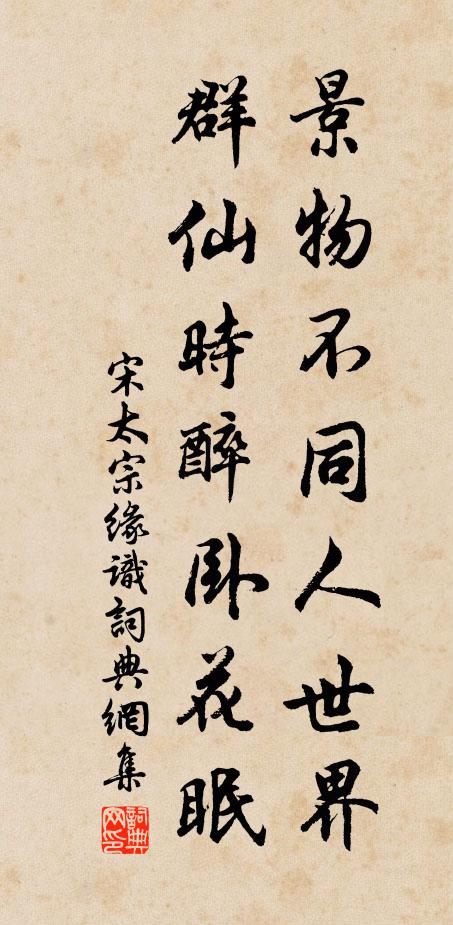 景物不同人世界
群仙時醉卧花眠
宋太宗緣識詞典網集
詞典网印